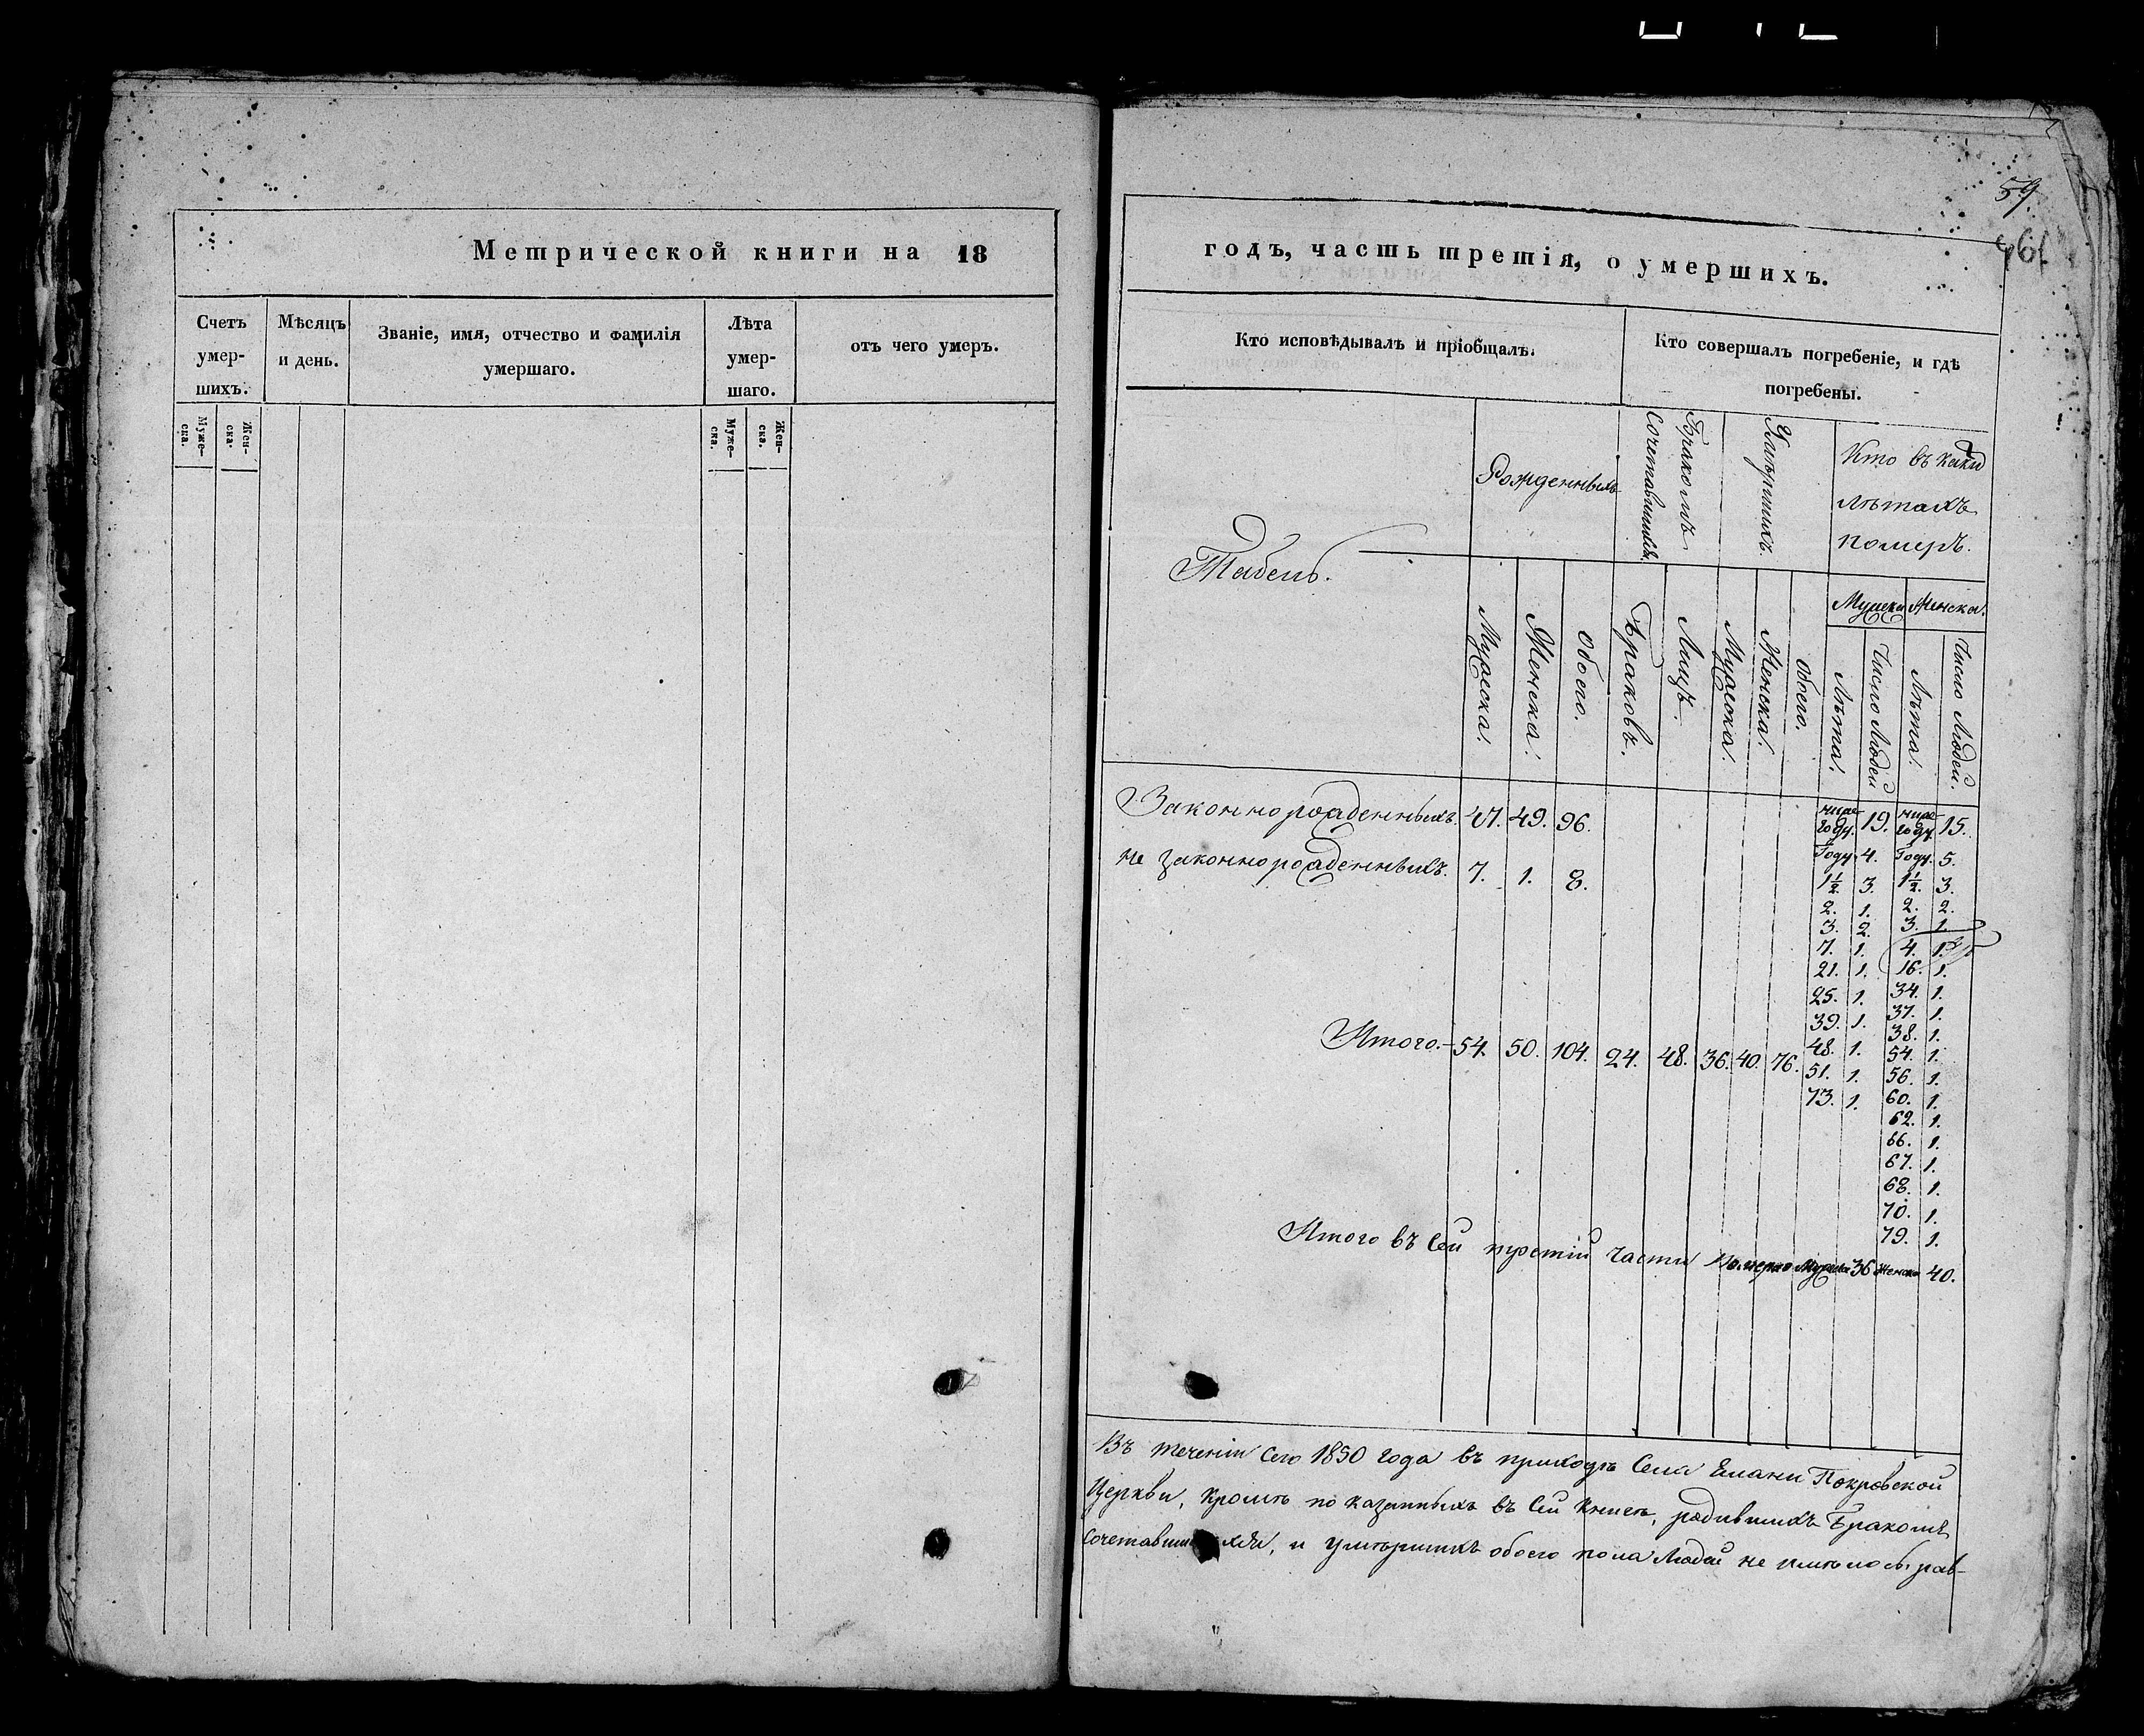 59.
Метрической книги на 18
годъ, часть третія, о умершихъ.
Счетъ умер-шихъ.
Мѣсяцъ и день.
Званіе, имя, отчество и фамилія
умершаго.
Лѣта умер-шаго.
отъ чего умеръ.
Муже-ска.
Жен-ска.
Муже-ска.
Жен-ска.
Кто исповѣдывалъ и пріобщалъ.
Кто совершалъ погребеніе, и гдѣ
погребены.
Табель.
Рожденныхъ
Бракомъ
Сочетавшихся.
Умершихъ.
Кто въ каких
лѣтахъ
померъ.
Мужска. Женска. Обоего. Браковъ. Лицъ. Мужска. Женска. Обоего.
Мужска Женска.
Лѣта. Число Людей Лѣта. Число Людей.
Законнорожденныхъ. 47. 49. 96.
не законнорожденныхъ. 7. 1. 8.
ниже году. 19. ниже году 15.
Году. 4. Году. 5.
1½. 3. 1½. 3.
2. 1. 2. 2.
3. 2. 3. 1.
7. 1. 4. 1.
21. 1. 16. 1.
25. 1. 34. 1.
39. 1. 37. 1.
48. 1. 38. 1.
51. 1. 54. 1.
73. 1. 56. 1.
60. 1.
62. 1.
66. 1.
67. 1.
68. 1.
70. 1.
79. 1.
Итого.- 54. 50. 104. 24. 48. 36. 40. 76.
Итого въ сей третій части померло Мужска 36 Женска 40.
Въ теченіи сего 1850 года въ приходѣ Села Елани Покровской
Церкви, кромѣ показанныхъ въ сей книгѣ, родившихъ Бракомъ
сочетавши хся, и умѣршихъ обоего пола людей не имѣлось, рав-